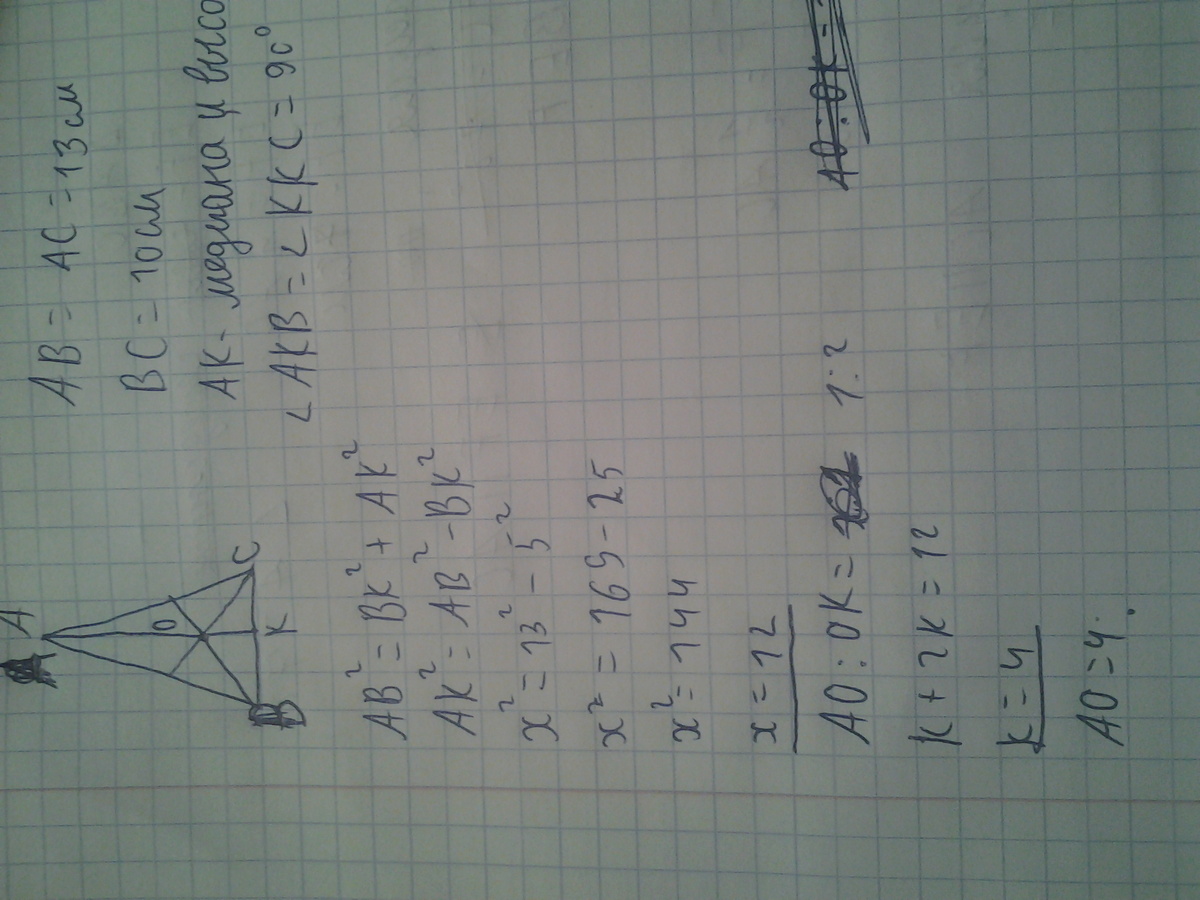 A
O
B K C
AB = AC = 13 см
BC = 10 см
AK - медиана и высо
∠ AKB = ∠ KKC = 90°
AB² = BK² + AK²
AK² = AB² - BK²
x² = 13² - 5²
x² = 169 - 25
x² = 144
x = 12
AO : OK = 1:2
AO : OK =
k + 2k = 12
k = 4
AO = 4.